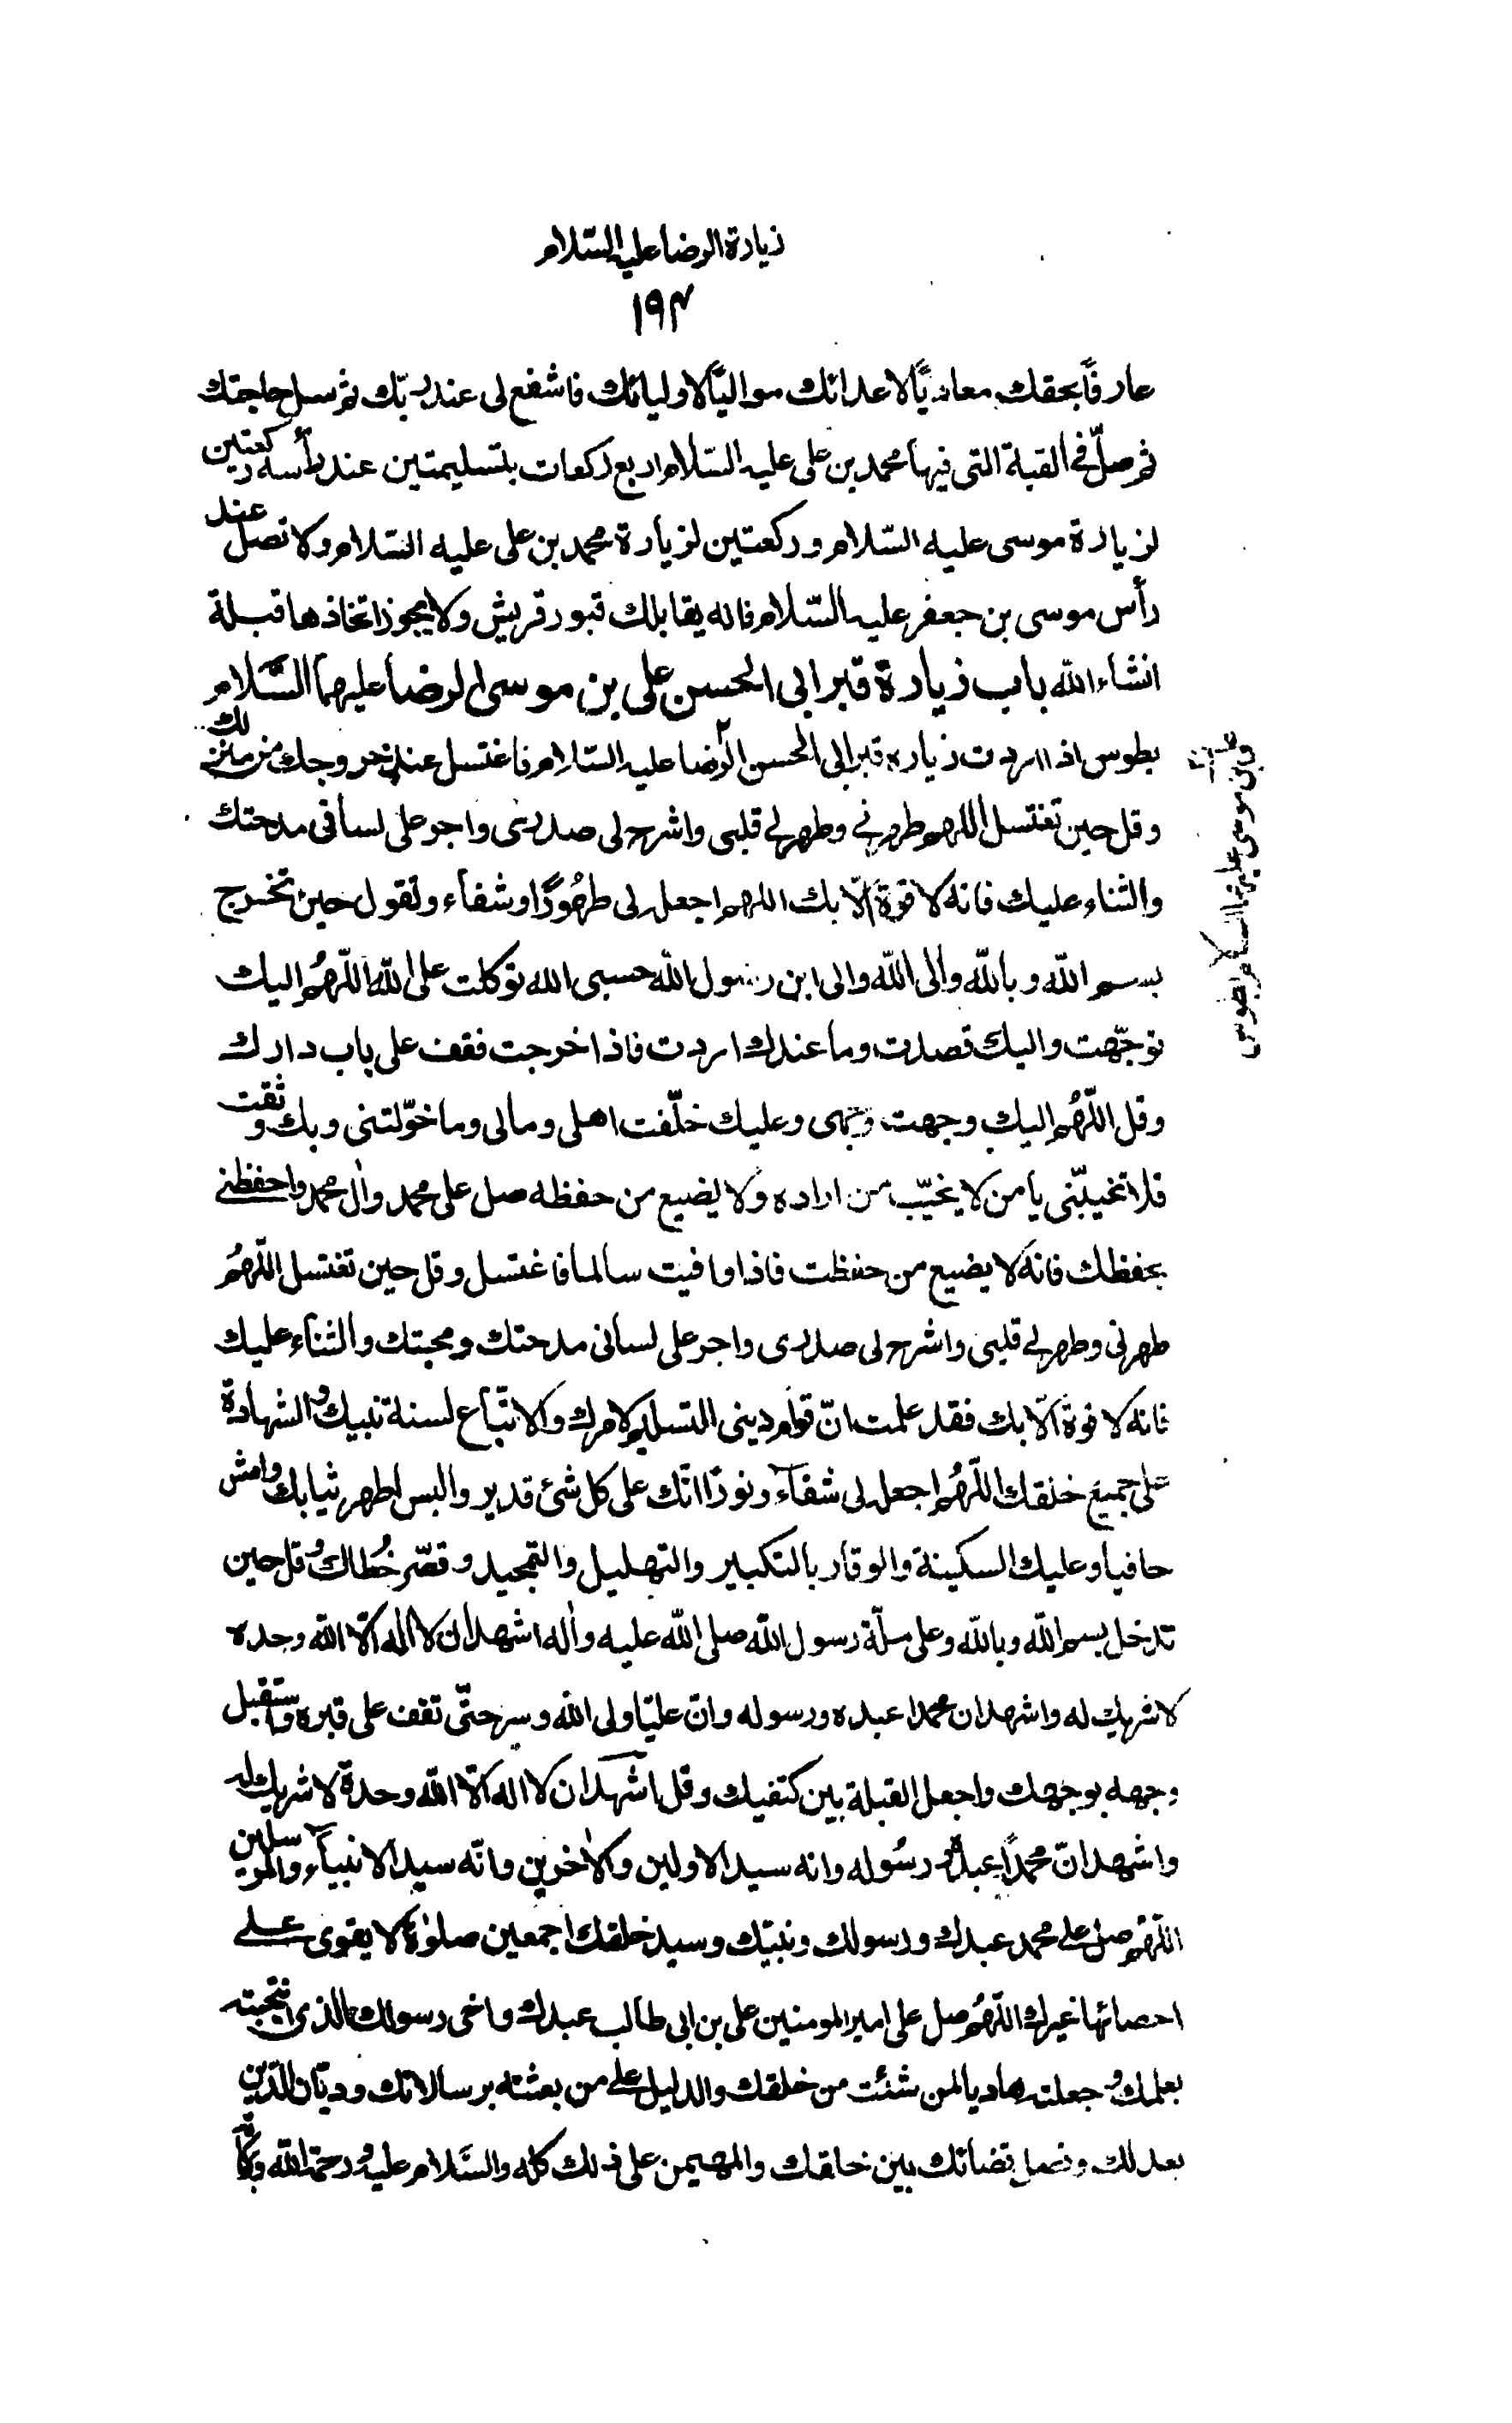 زيارة الرضا عليه السّلام
١٩٣
عارفاً بحقك معاديًا لاعدائك مواليًا لاوليائك فاشفع لى عند ربّك ثم سل حاجتك
ثم صلّ فى القبة التى فيها محمد بن على عليه السّلام اربع ركعات بتسليمتين عند رأسه ركعتين
لزيارة موسى عليه السّلام وركعتين لزيارة محمد بن على عليه السّلام ولا تصل عند
رأس موسى بن جعفر عليه السّلام فانه يقابلك قبور قريش ولا يجوز اتخاذها قبلة
انشاء الله باب زيارة قبر ابى الحسن على بن موسى الرضا عليهما السَّلام
بطوس اذا اردت زيارة قبر ابى الحسن الرّضا عليه السّلام فاغتسل عند خروجك من منزلك
وقل حين تغتسل اللهم طهرنے وطهر لے قلبى واشرح لى صدرى واجر على لسانى مدحتك
والثناء عليك فانه لا قوة الّا بك اللهم اجعله لى طهُورًا وشفاء وتقول حين تخرج
بسم الله وبالله والى الله والى ابن رسول الله حسبى الله توكلت على الله اللّهُم اليك
توجّهت واليك قصدت وما عندك اردت فاذا خرجت فقف على باب دارك
وقل اللّهُم اليك وجهت وجهى وعليك خلّفت اهلى ومالى وما خوّلتنى وبك وثقت
فلا تخيبّنى يا من لا يخيّب من اراده ولا يضيع من حفظه صل على محمد واٰل محمد واحفظنے
بحفظك فانه لا يضيع من حفظت فاذا وافيت سالما فاغتسل وقل حين تغتسل اللّهُم
طهرنى وطهر لے قلبى واشرح لى صدرى واجر على لسانى مدحتك ومحبتك والثناء عليك
فانه لا قوة الّا بك فقد علمت انّ قوام دينى التسليم لامرك والاتّباع لسنة نبيك والشهادة
على جميع خلقك اللّهُم اجعله لى شفاء ونورًا انّك على كل شئ قدير والبس اطهر ثيابك وامش
حافيا وعليك السكينة والوقار بالتكبير والتهليل والتمجيد وقصّر خُطاك وقل حين
تدخل بسم الله وبالله وعلى ملّة رسول الله صلى الله عليه واٰله اشهد ان لا اله الّا الله وحده
لا شريك له واشهد ان محمدا عبده ورسوله وانّ عليّا ولى الله وسر حتّى تقف على قبره وتستقبل
وجهه بوجهك واجعل القبلة بين كتفيك وقل اشهد ان لا اله الّا الله وحدة لا شريك له
واشهد انّ محمدًا عبده ورسُوله وانه سيد الاولين والاٰخرين وانّه سيد الانبياء والمرسلين
اللّهُم صل على محمد عبدك ورسولك ونبيّك وسيد خلقك اجمعين صلوٰة لا يقوى علے
احصائها غيرك اللّهُم صل على امير المومنين على بن ابى طالب عبدك واخى رسولك الذى انتجبته
بعلمك وجعلته هاديا لمن شئت من خلقك والدليل على من بعثته برسالاتك وديّان الدّين
بعدلك وفصل قضائك بين خلقك والمهيمن على ذلك كله والسَّلام عليه ورحمة الله وبركاته
بن موسى عليهما السلام بطوس